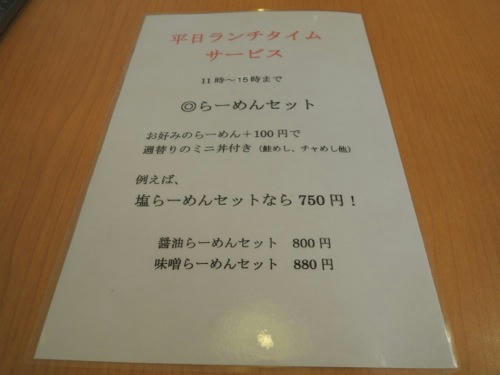 平日ランチタイム
サービス
11時～15時まで
◎らーめんセット
お好みのらーめん＋100円で
週替りのミニ丼付き（鮭めし、チャめし他）
例えば、
塩らーめんセットなら 750 円！
醤油らーめんセット　800 円
味噌らーめんセット　880 円